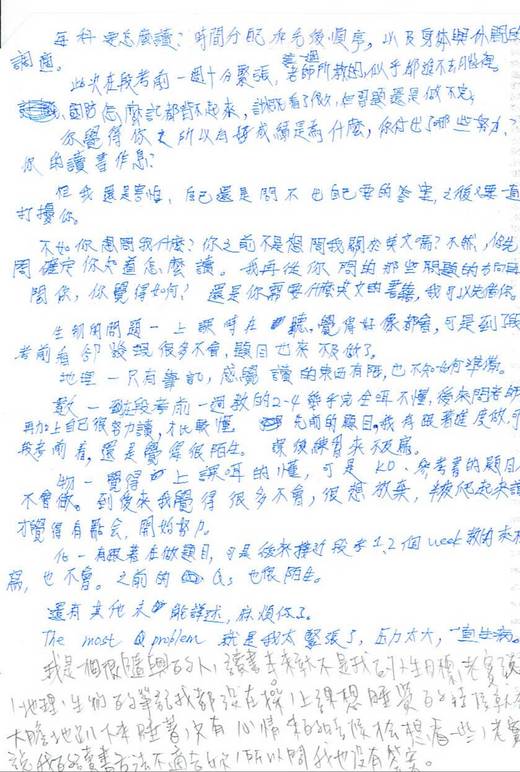 每科要怎麼讀?時間分配和先後順序,以及身體與休閒的
調適。
此次在段考前一週十分緊張,老師所教的,似乎都進不去
國防怎麼記都背不起來,看了但習題還是做不完,
你覺得你之所以有好成績是為什麼,你付出了哪些努力?
你的讀書作息?
但我還是害怕,自己還是問不出自己要的答案,之後又要一直
打擾你。
不如你想問我什麼?你之前不是想問我關於英文嗎?不然,你先
問確定你知道怎麼讀。我再從你問的那些問題的方向
問你,你覺得如何?還是你需要什麼英文的我可以先借你。
生物的問題-上課時在聽,覺得好像都會,可是到了段
考前看卻發現很多不會,題目也來不及做了。
地理-只有筆記,感覺讀的東西有限,也不知如何準備。
數-段考前一週教的2-4幾乎完全聽不懂,後來問老師
再加上自己很努力讀,才比較懂 先前的題目,我有跟著進度做,可
段考前看,還是覺得很陌生。課後練習來不及寫。
物-覺得上課聽的懂,可是KO、參考書的題目
不會做。到後來我覺得很多不會,很想放棄,爬起來讀
才覺得有點會,開始努力。
化-有跟著在做題目,可是後來接近段考1、2個week教的來不
寫,也不會。之前的Qs也很陌生。
還有其他未能詳述,麻煩你了。
The most Q problem 就是我太緊張了,壓力太大,一直生病。
我是個很隨興的人,讀書本來就不是我的人生目標,老實說
地理、生物的筆記我都沒在抄,上課想睡覺的時候就
大膽地趴下來睡著,只有心情來的時候才會想看一些,老實
說我的讀書方法不適合你,所以問我也沒有答案。